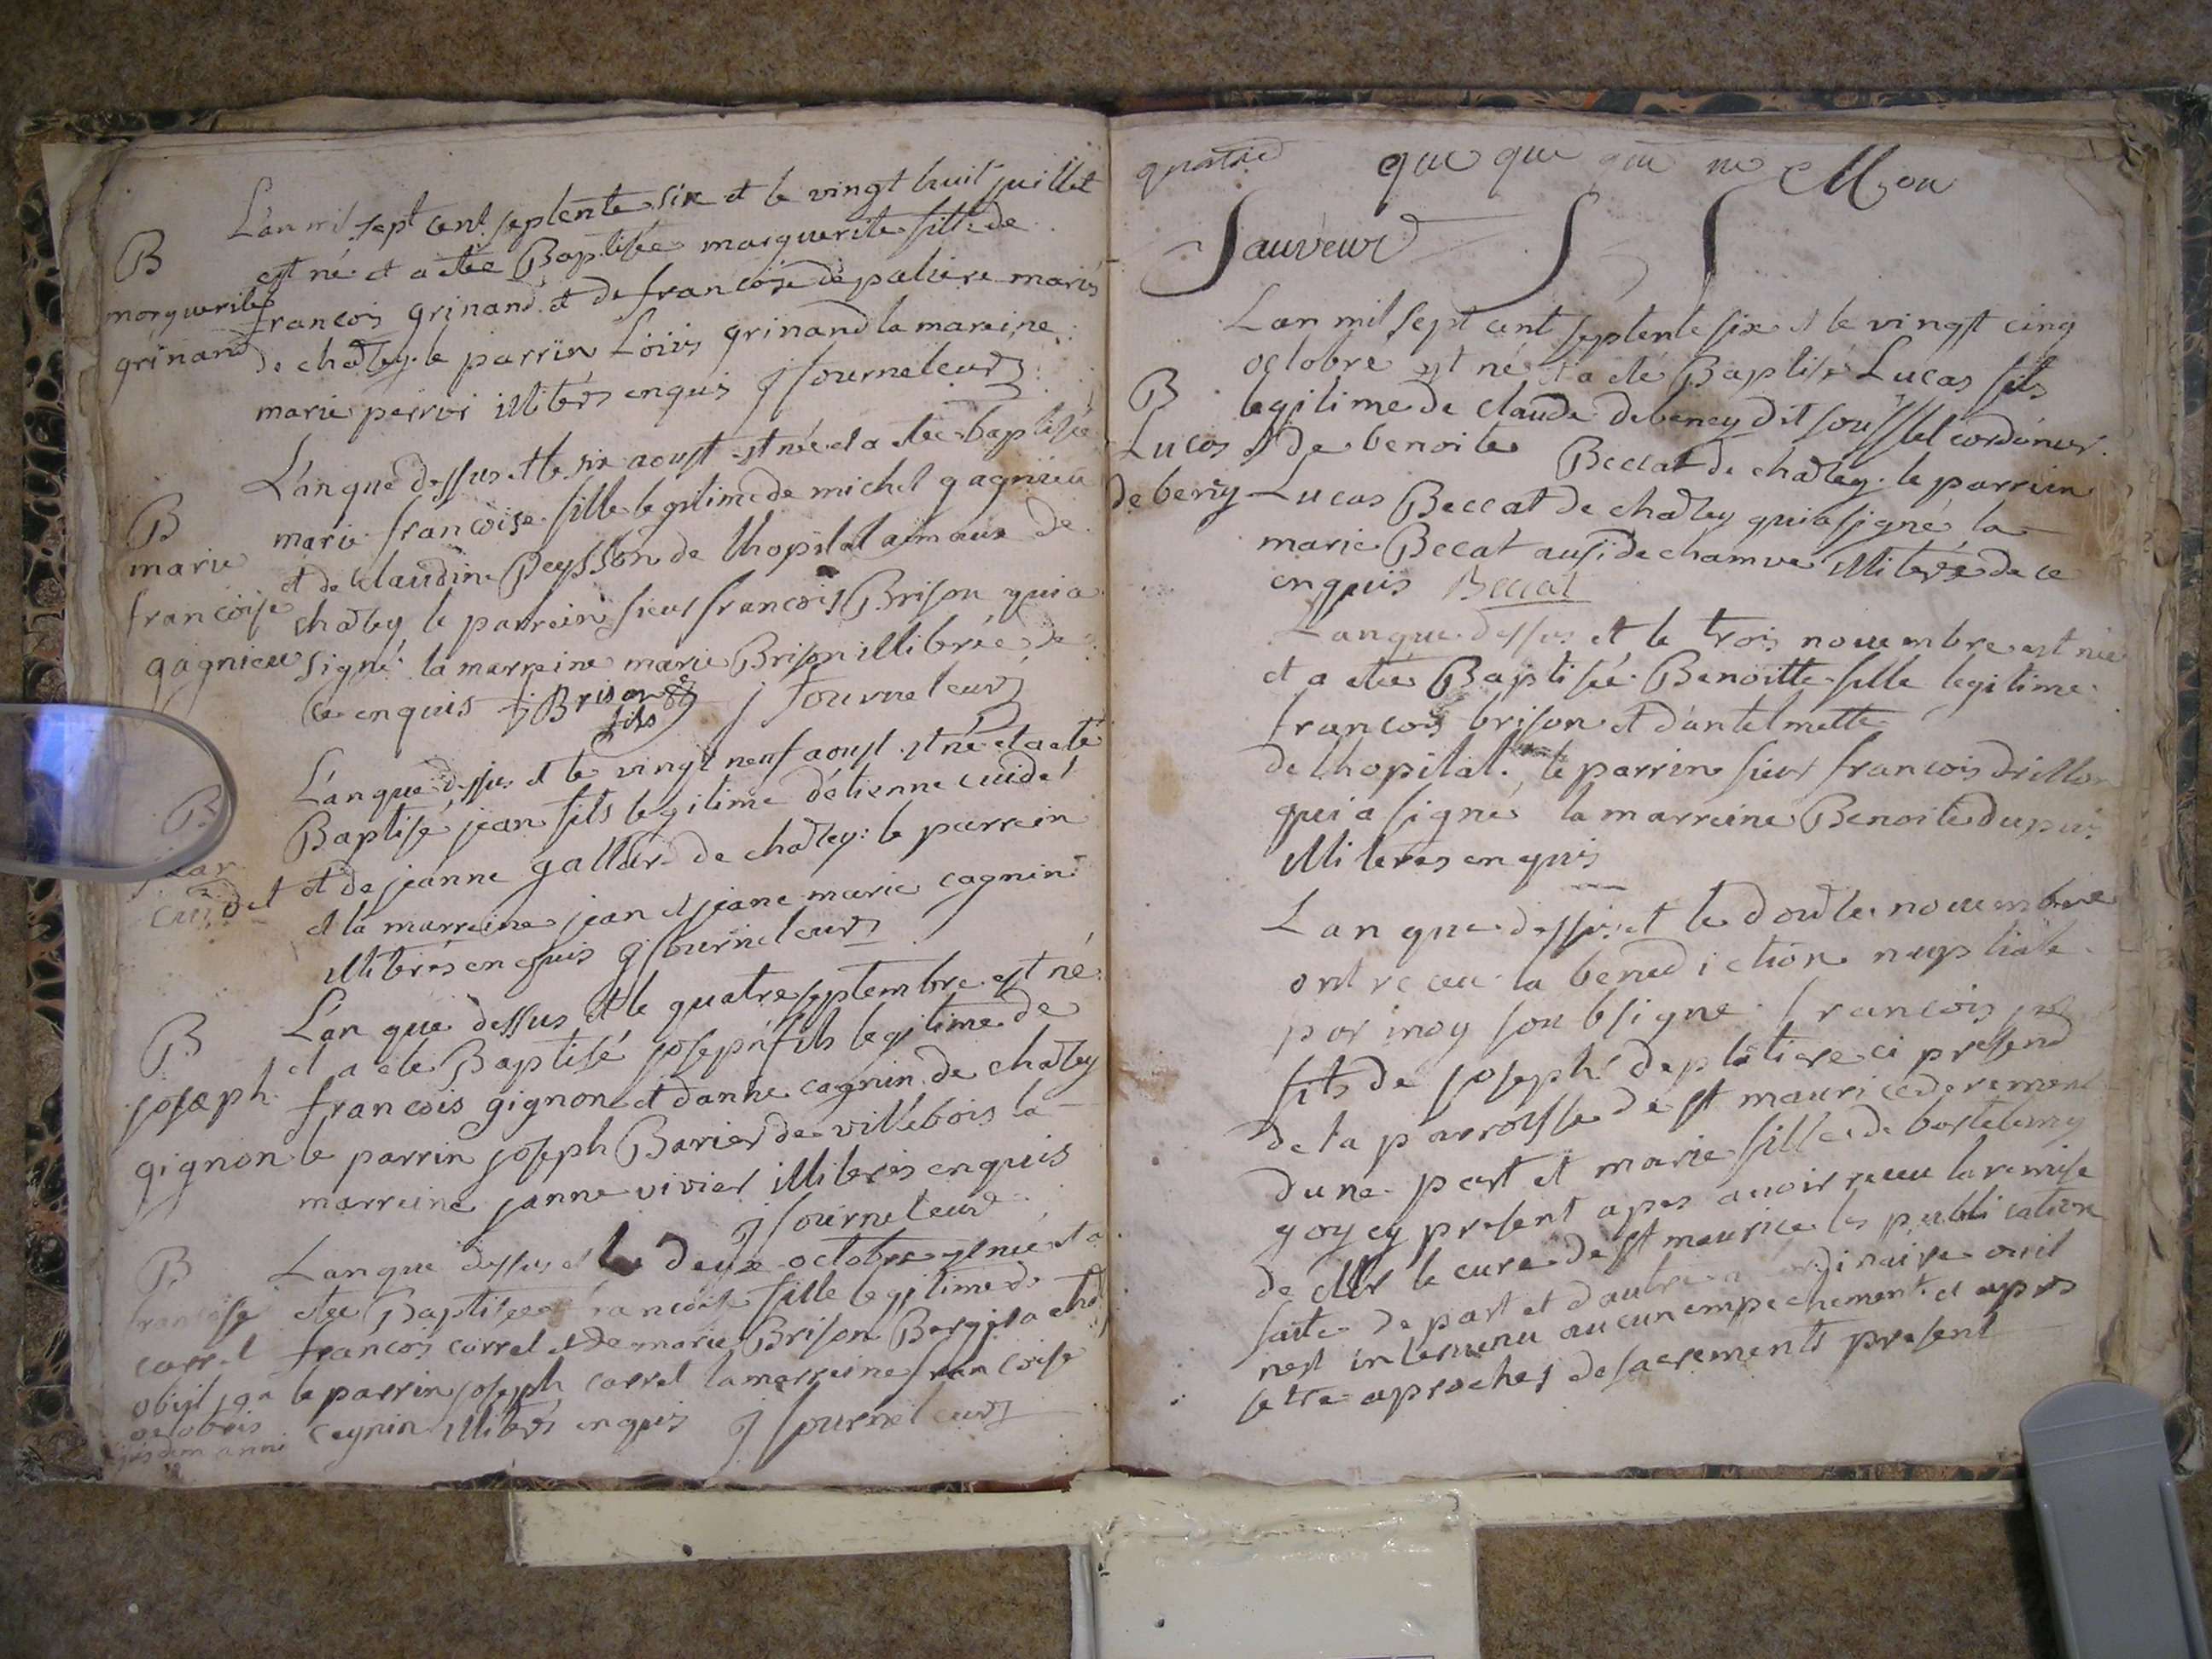 L'an mil sept cent septente six et le vingt huit juillet
B
est né et a etee Baptisée marguerite fille de
marguerite
francois grinand et de francoise depaliere mariés
grinand
de chatley le parrin Loüis grinand la mareine
marie perroi illiterés enquis j fourneleur
L'an que dessus et le six aoust est née et a etee baptisée
B
marie francoise fille legitime de michel gagnieu
marie
et de claudine Peysson de lhopital aimaux de
francoise
chatley le parrein sieur francois Brison qui a
gagnieu
signé la marreine marie Brison illitérée de
ce enquis Brison fils j fourneleur
L'an que dessus et le vingt neuf aoust est né et a eté
B
Baptisé jean fils legitime d'étienne cuidet
et de jeanne gallard de chatley le parrein
cuidet
et la marreine jean et jeane marie cagnin
illiterés enquis j fourneleur
L'an que dessus et le quatre septembre est né
B
et a eté Baptisé joseph fils legitime de
joseph
francois gignon et danne cagnin de chatley
gignon
le parrin joseph Barier de villebois la
marreine janne vivier illiterés enquis
j fourneleur
B
Lan que dessus et le deux octobre est née et a
francoise
etee Baptisee francoise fille legitime de
carrel
francois carrel et de marie Brison
obiit
le parrin joseph carrel la marreine francoise
octobris
cagnin illiterés enquis j fourneleur
anni
que que que ne Mon
Sauveur S S
Lan mil sept cent septente six et le vingt cinq
octobre est né et a eté Baptisé Lucas fils
B
legitime de claude debeney dit soufflet cordonier
Lucas
et de benoite Beccat de chatley le parrein
debeney
Lucas Beccat de chatley qui a signé la
marie Beccat ausi de illiterée de ce
enquis Beccat
Lan que dessus et le trois novembre est née
et a etée Baptisée Benoitte fille legitime
francois brison et d'antelmette
de lhopital le parrin sieur francois drillon
qui a signé la marreine Benoite dupuis
illiteres enquis
Lan que dessus et le douze novembre
ont receu la benediction nuptiale
par moy soubsigné francois
fils de joseph deplatiere ci present
de la parroisse de st maurice de remens
dune part et marie fille de bartelemy
goy cy present apres avoir receu la remise
de Mr le curé de st maurice les publication
faite de part et dautre a ordinaire ou il
nest intervenu aucun empechement et apres
setre aproches de sacrements present